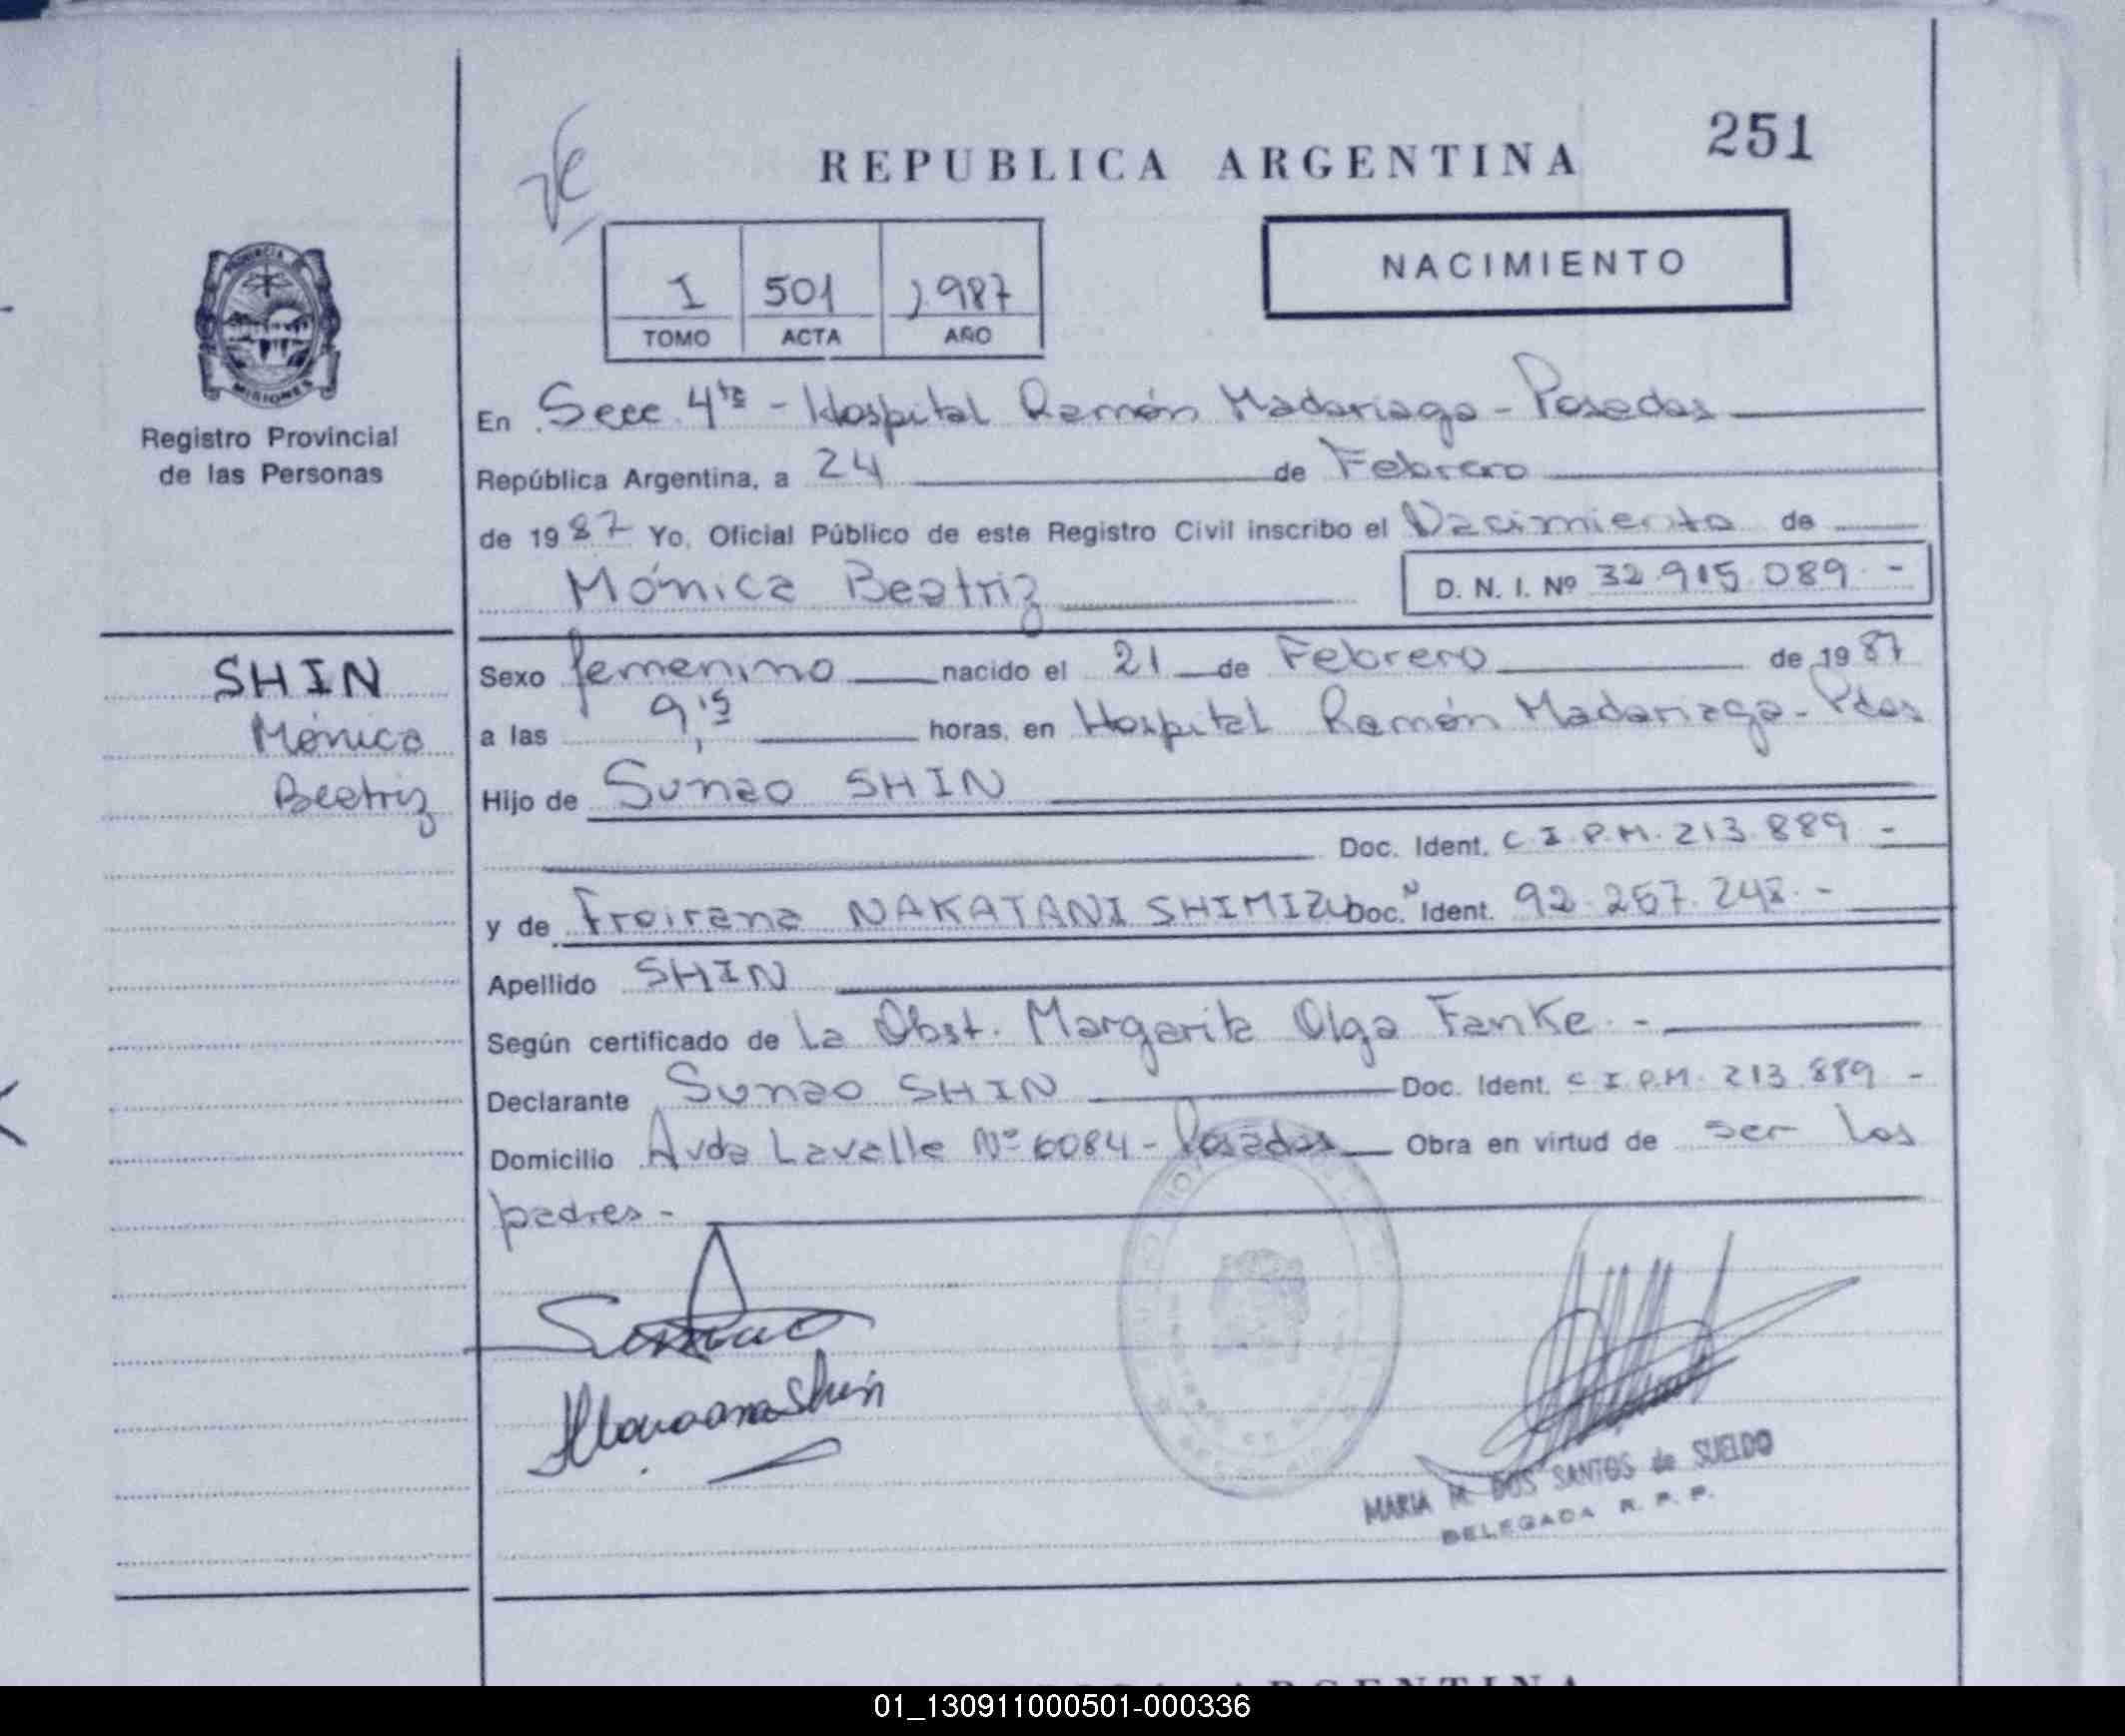 251
REPUBLICA ARGENTINA
NACIMIENTO
I 501 1987
TOMO ACTA AÑO
PROVINCIA
MISIONES
Registro Provincial
de las Personas
En Secc. 4ta - Hospital Ramón Madariaga - Posadas
República Argentina, a 24 de Febrero
de 1987 Yo, Oficial Público de este Registro Civil inscribo el Nacimiento de
Mónica Beatriz D. N. I. Nº 32.915.089.-
SHIN
Mónica
Beatriz
Sexo femenino nacido el 21 de Febrero de 1987
a las 9,15 horas, en Hospital Ramón Madariaga - Pdas
Hijo de Sunao SHIN
Doc. Ident. C.I.P.M. 213.889.-
y de NAKATANI SHIMIZU Doc. Ident. 92.257.248.-
Apellido SHIN
Según certificado de La Obst. Margarita Olga Fanke.-
Declarante Sunao SHIN Doc. Ident. C.I.P.M. 213.889-
Domicilio Avda Lavalle Nº 6084 - Posadas Obra en virtud de ser los
padres -
Sunao
Shin
MARIA M. DOS SANTOS de SUELDO
DELEGADA R. P. P.
01_130911000501-000336